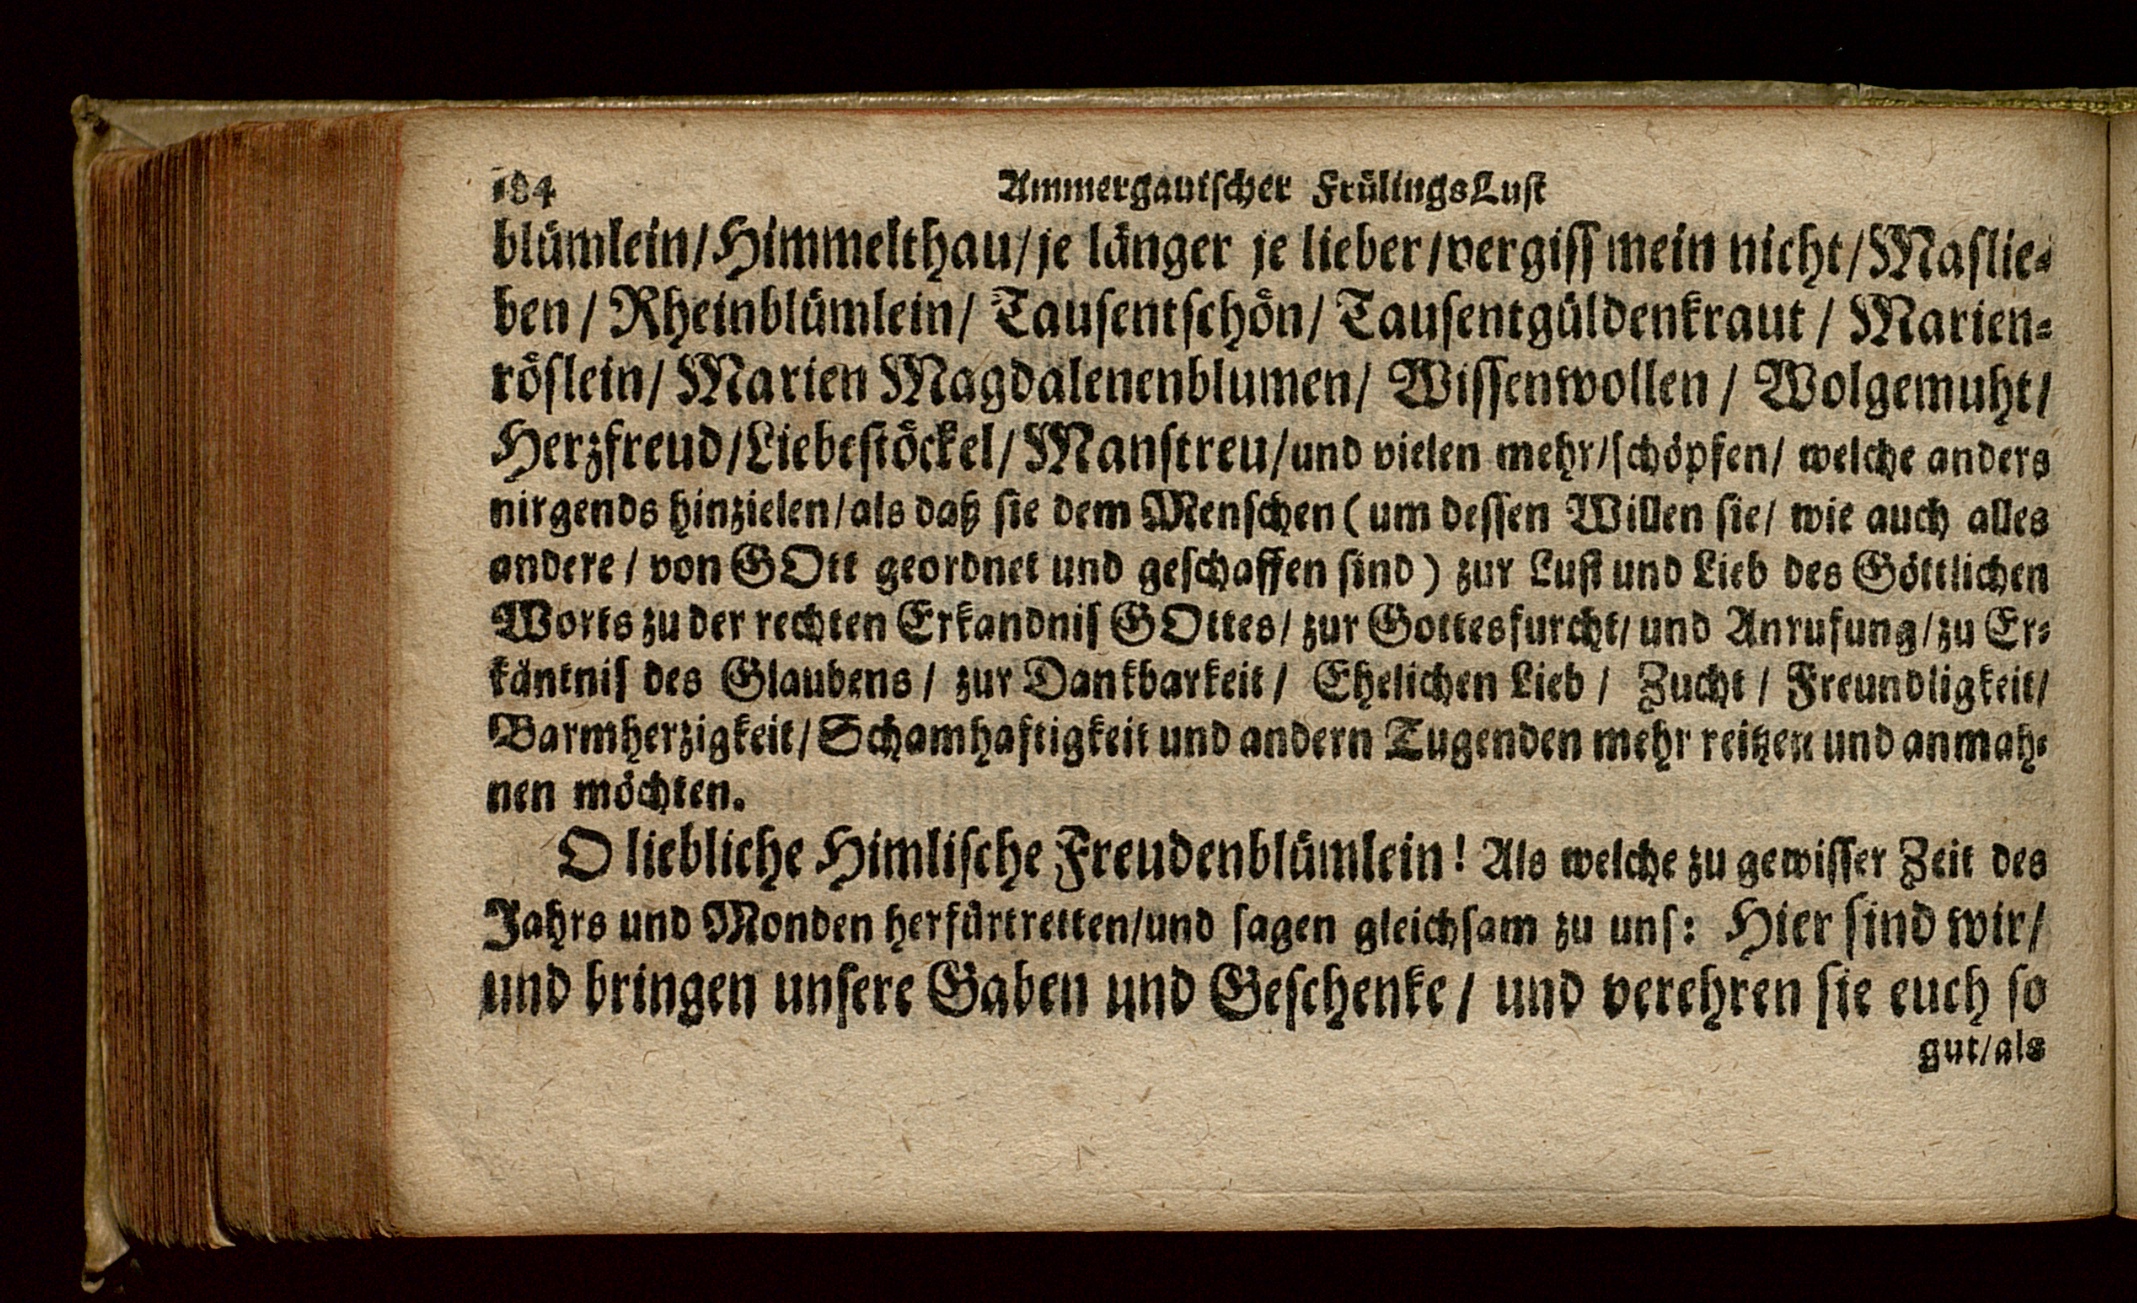 184 Ammergauischer FrülingsLust
blümlein/Himmelthau/je länger je lieber/vergiss mein nicht/Maslie-
ben/ Rheinblümlein/ Tausentschön/ Tausentgüldenkraut/ Marien-
röslein/ Marien Magdalenenblumen/ Wissenwollen/ Wolgemuht/
Herzfreud/Liebestöckel/Manstreu/und vielen mehr/schöpfen/ welche anders
nirgends hinzielen/als daß sie dem Menschen (um dessen Willen sie/ wie auch alles
andere/ von GOtt geordnet und geschaffen sind) zur Lust und Lieb des Göttlichen
Worts zu der rechten Erkandnis GOttes/ zur Gottesfurcht/und Anrufung/zu Er-
käntnis des Glaubens/ zur Dankbarkeit/ Ehelichen Lieb/ Zucht/ Freundligkeit/
Barmherzigkeit/Schamhaftigkeit und andern Tugenden mehr reitzen und anmah-
nen möchten.
O liebliche Himlische Freudenblümlein! Als welche zu gewisser Zeit des
Jahrs und Monden herfürtretten/und sagen gleichsam zu uns: Hier sind wir/
und bringen unsere Gaben und Geschenke/ und verehren sie euch so
gut/als